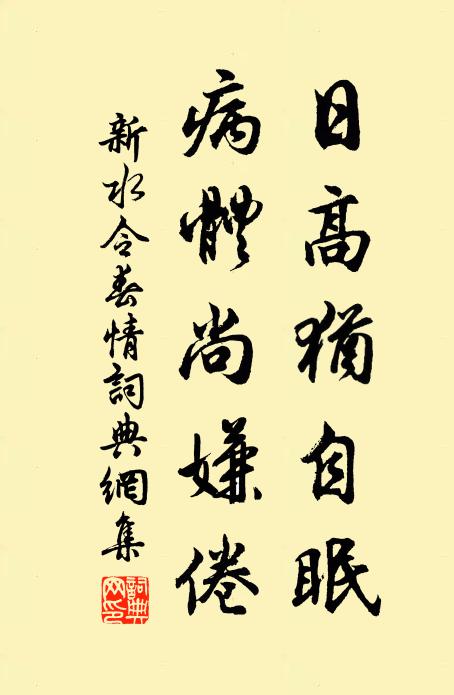 日高猶自眠
病體尚嫌倦
新水令春情詞典網集
詞典網印